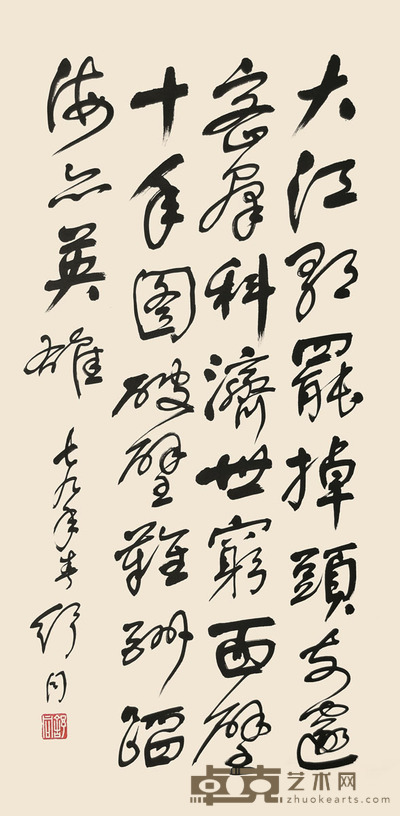 大江歌罷掉頭東邃
密羣科濟世窮面壁
十年圖破壁難酬蹈
海亦英雄
七九年春 舒同
舒同
卓克艺术网
zhuokearts.com